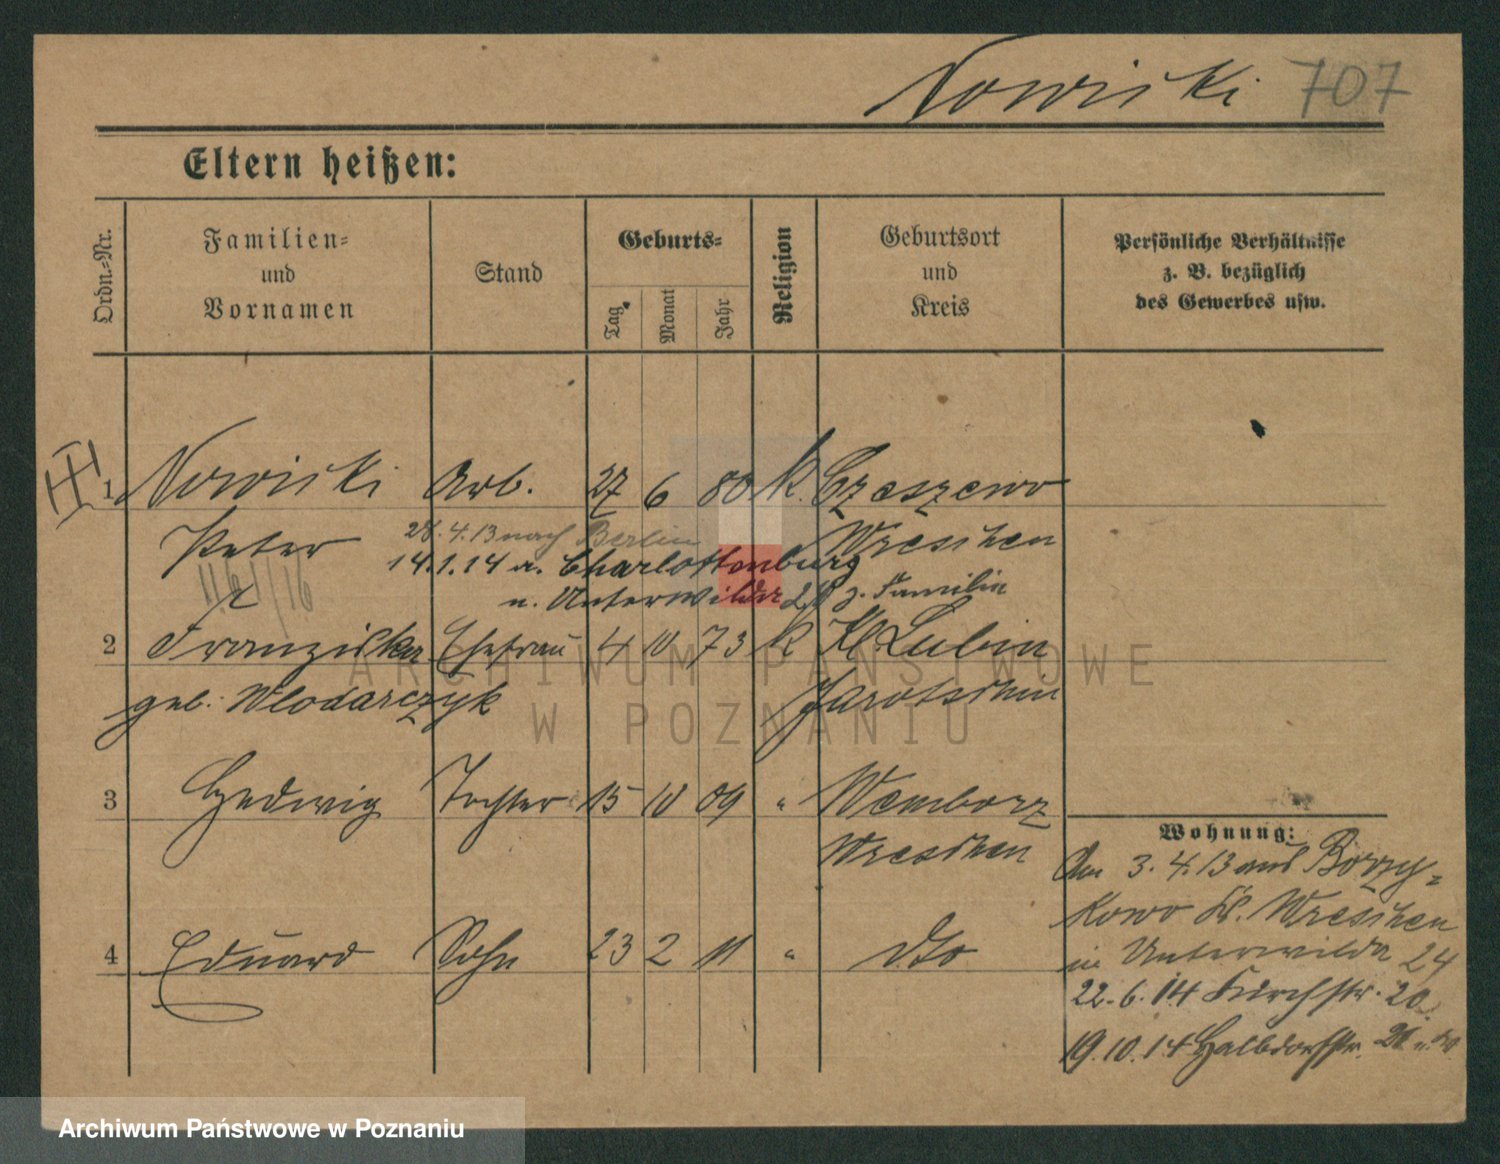 Nowicki 707
Eltern heißen:
Ordn.-Nr.
Familien-
und
Vornamen
Stand
Geburts-
Tag
Monat
Jahr
Religion
Geburtsort
und
Kreis
Persönliche Verhältnisse
z. B. bezüglich
des Gewerbes usw.
1 Nowicki Arb. 27 6 80 k. Czeszewo
Peter Wreschen
28.4.13 nach Berlin
14.1.14 a. Charlottenburg
n. Unterwilda z. Familie
2 Franziska Ehefrau 4 10 73 k Kl Lubin
geb. Wlodarczyk Jarotschin
3 Hedwig Tochter 15 10 09 " Wemborz
Wreschen
4 Eduard Sohn 23 2 11 " dto
Wohnung:
Am 3.4.13 aus Borzy-
kowo Kr. Wreschen
in Unterwilda 24
22.6.14 Kirchstr. 20
19.10.14 Halbdorfstr.
ARCHIWUM PAŃSTWOWE
W POZNANIU
Archiwum Państwowe w Poznaniu